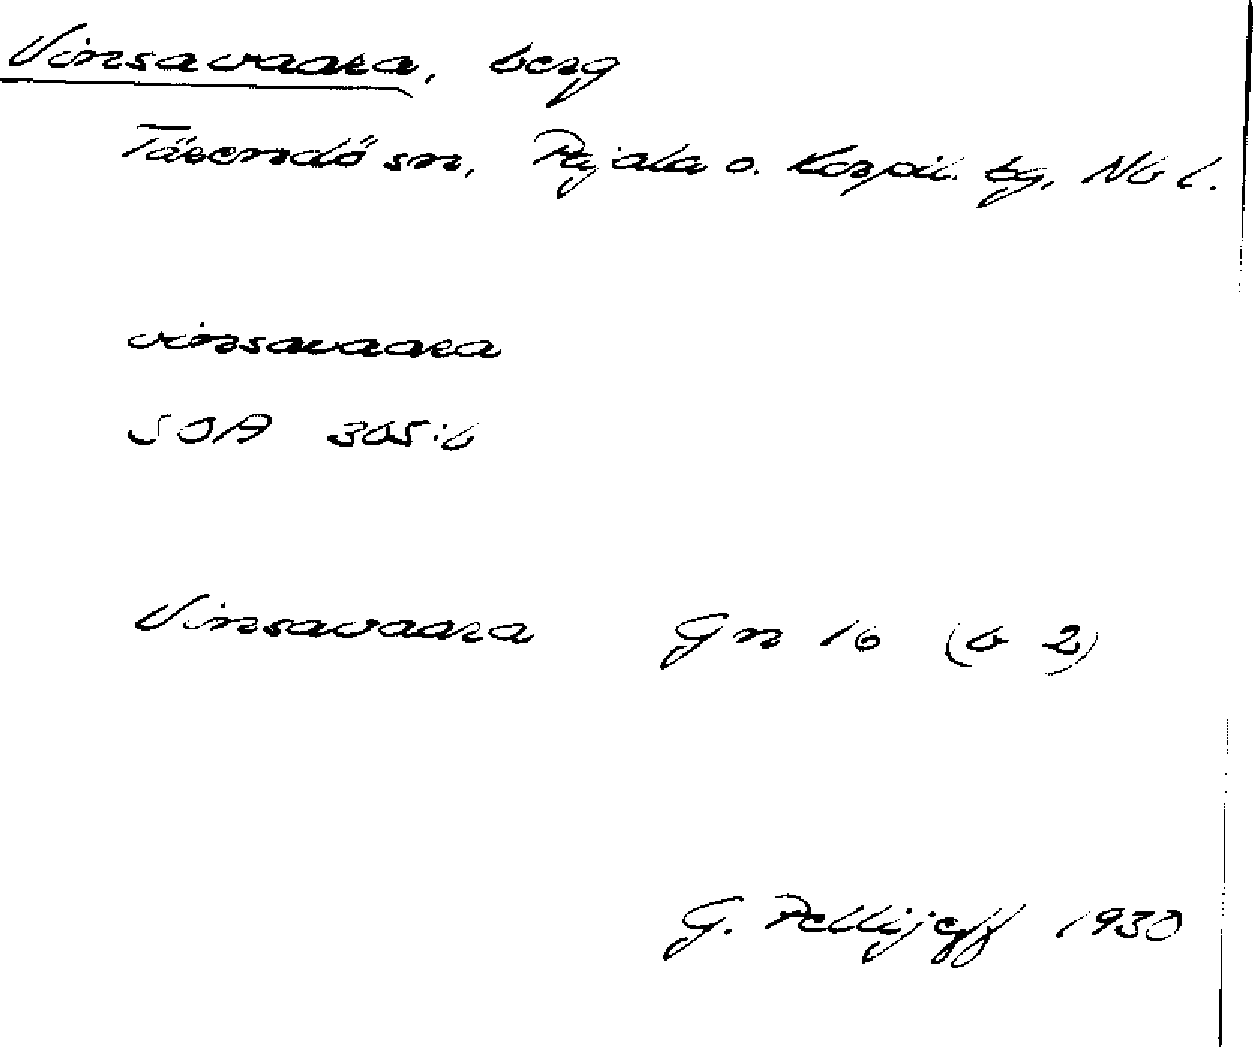 Vinsavaara, berg
Tärendö sn, Pajala o. Korpil. tg, Nb l.
vinsavaara
SOA 365:6
Vinsavaara Gn 16 (b 2)
G. Pellijeff 1930